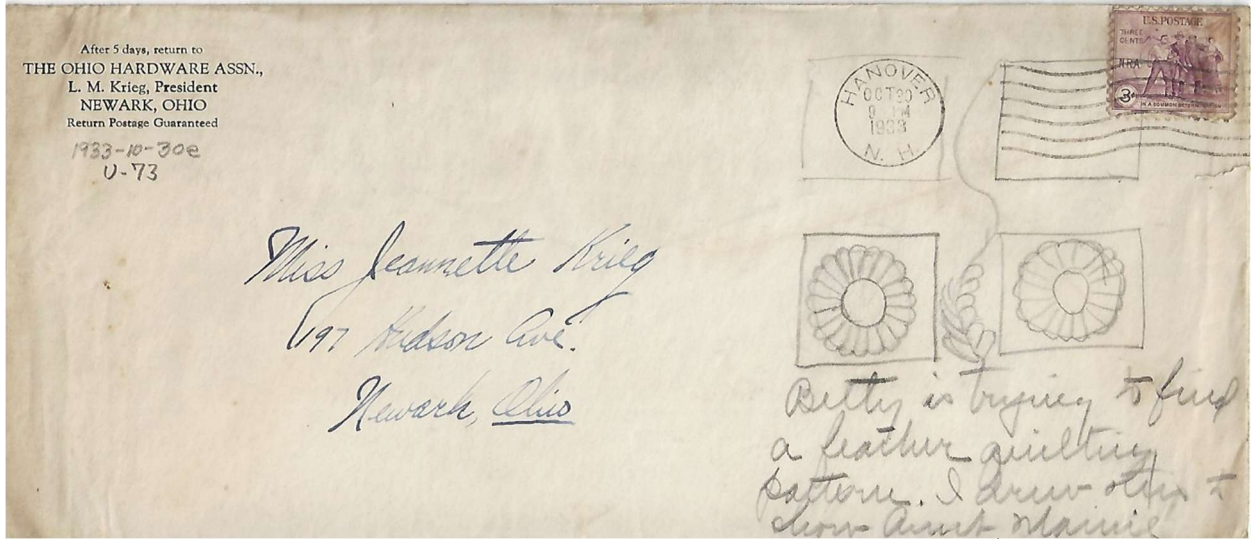 After 5 days, return to
THE OHIO HARDWARE ASSN.,
L. M. Krieg, President
NEWARK, OHIO
Return Postage Guaranteed
1933-10-30e
U-73
U.S. POSTAGE
THREE
CENTS
NRA
3¢
IN A COMMON DETERMINATION
HANOVER
OCT 30
9 PM
1933
N. H.
Miss Jeannette Krieg
197 Hudson Ave.
Newark, Ohio
Betty is trying to find
a feather quilting
pattern. I drew this to
show Aunt Mamie